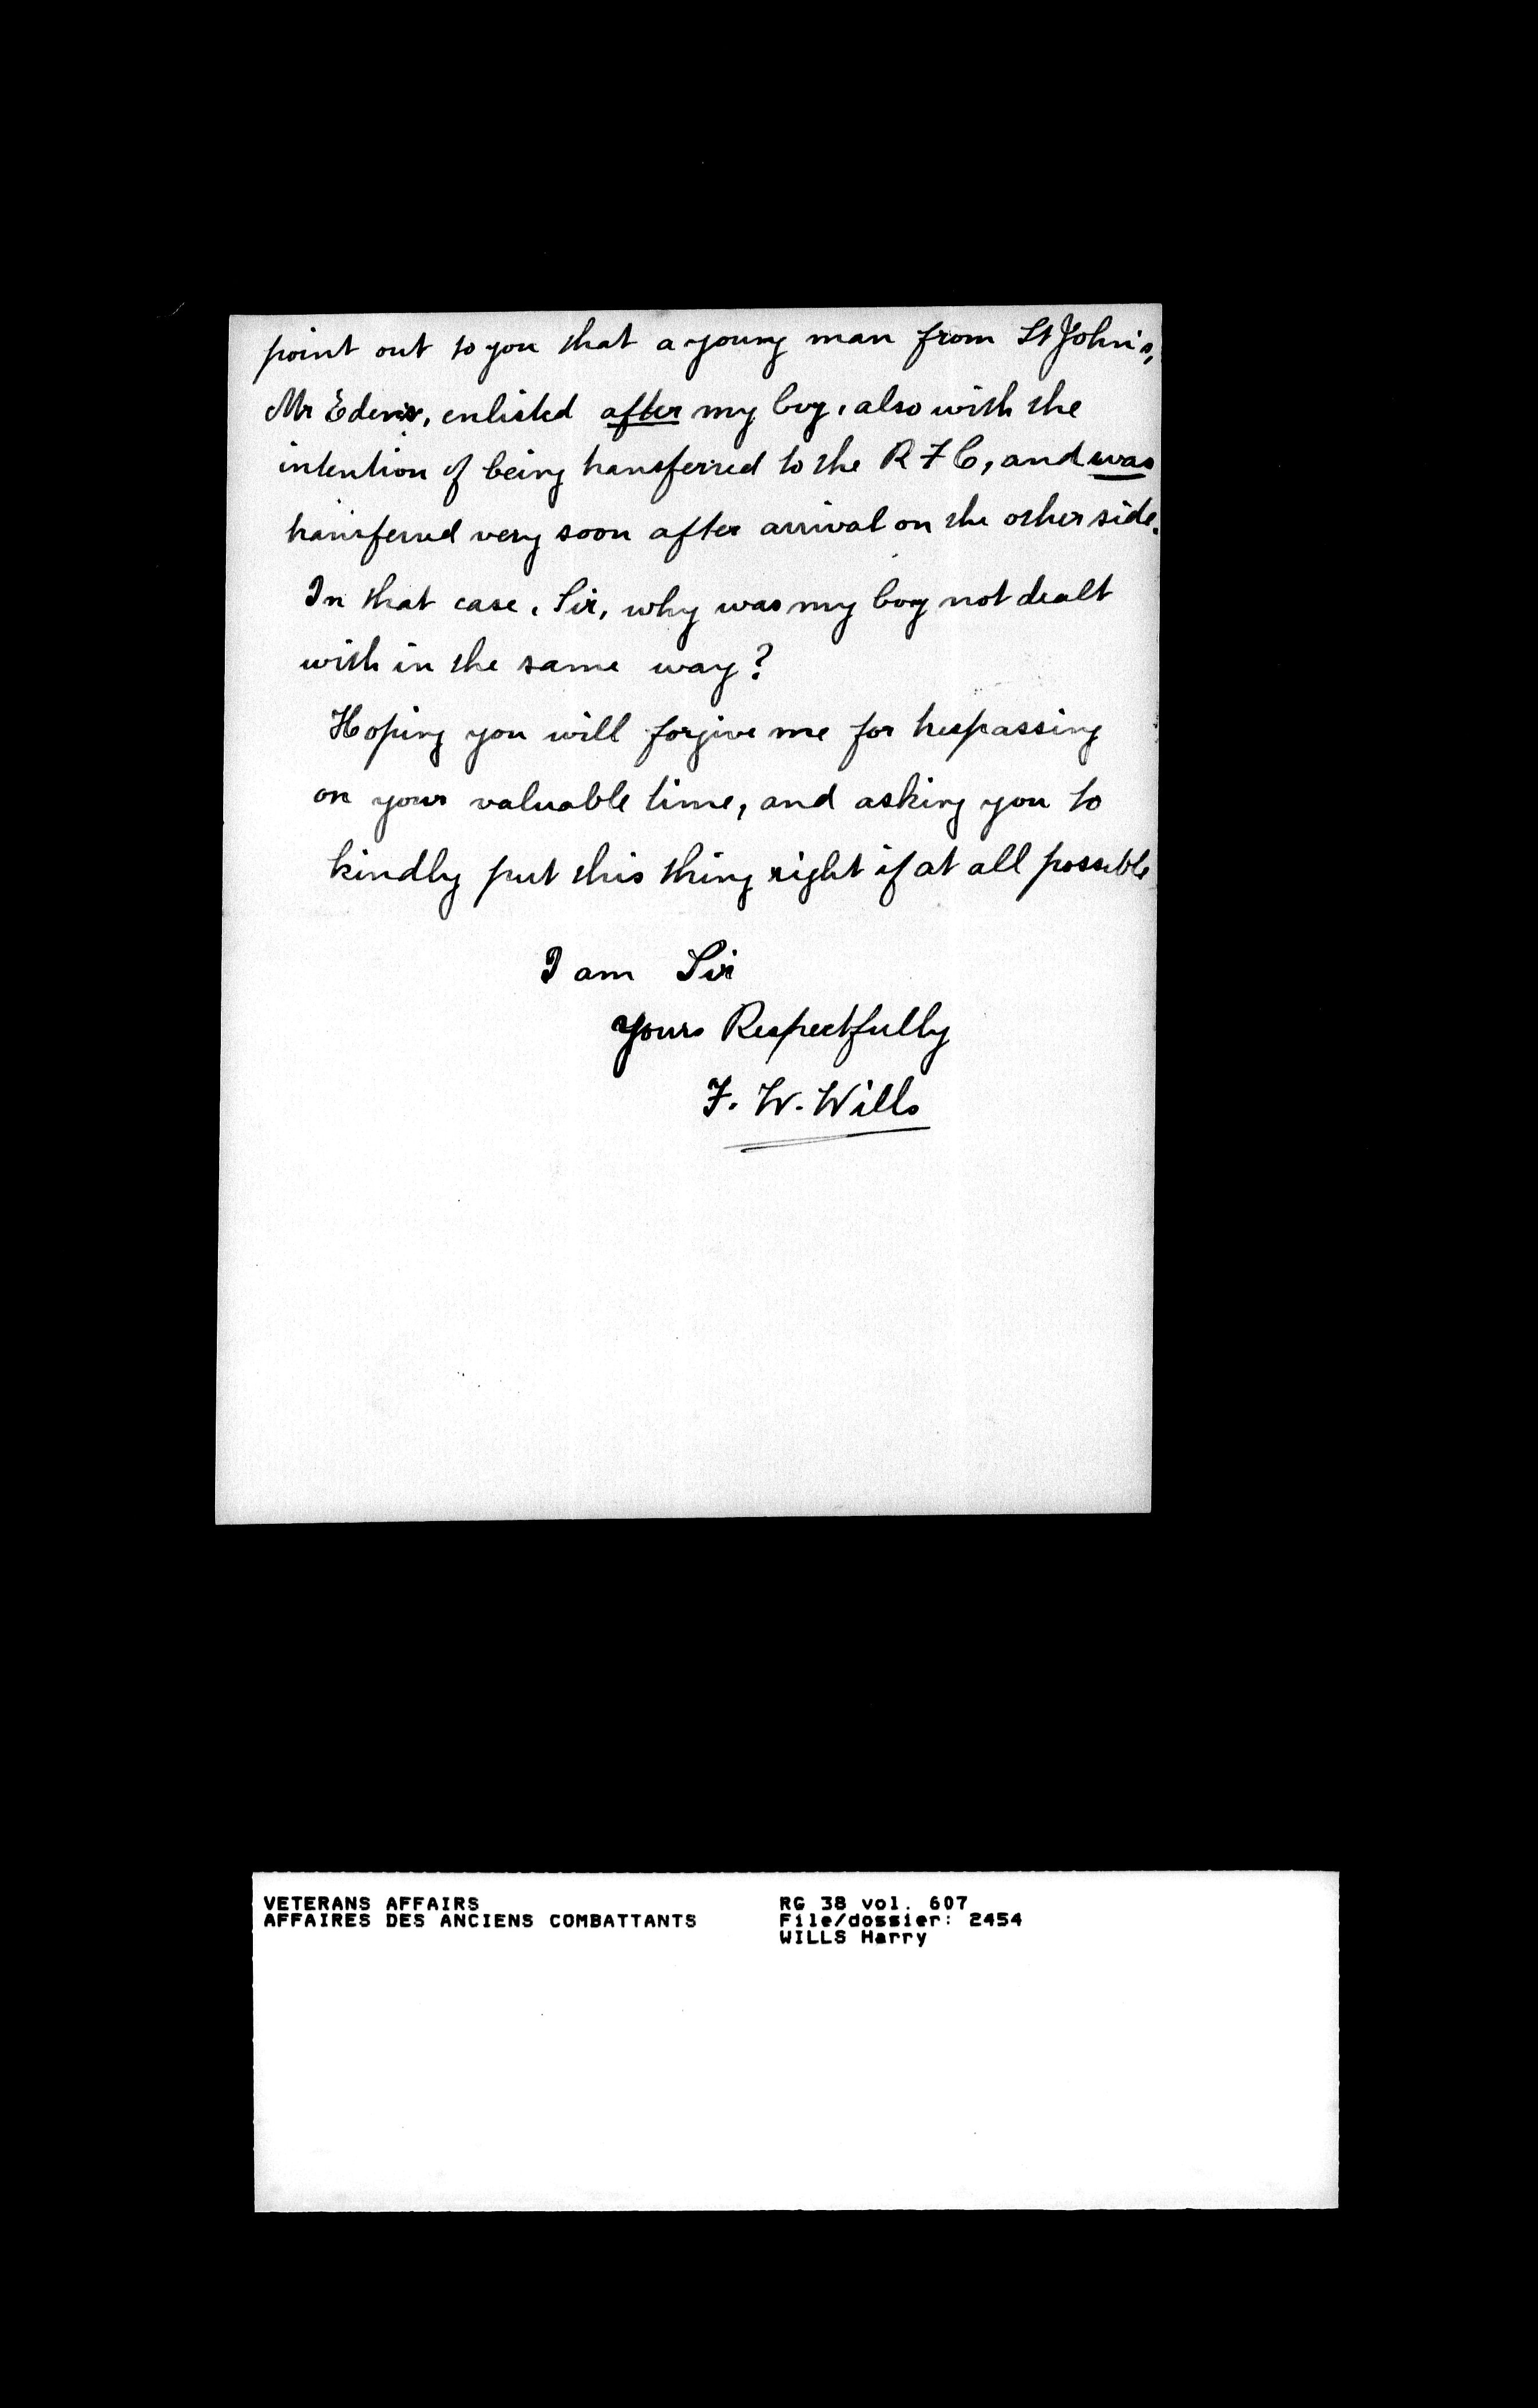 point out to you that a young man from St John's,
Mr Edens, enlisted after my boy, also with the
intention of being transferred to the R F C, and was
transferred very soon after arrival on the other side.
In that case, Sir, why was my boy not dealt
with in the same way?
Hoping you will forgive me for trespassing
on your valuable time, and asking you to
kindly put this thing right if at all possible
I am Sir
Yours Respectfully
F. W. Wills
VETERANS AFFAIRS
AFFAIRES DES ANCIENS COMBATTANTS
RG 38 vol. 607
File/dossier: 2454
WILLS Harry